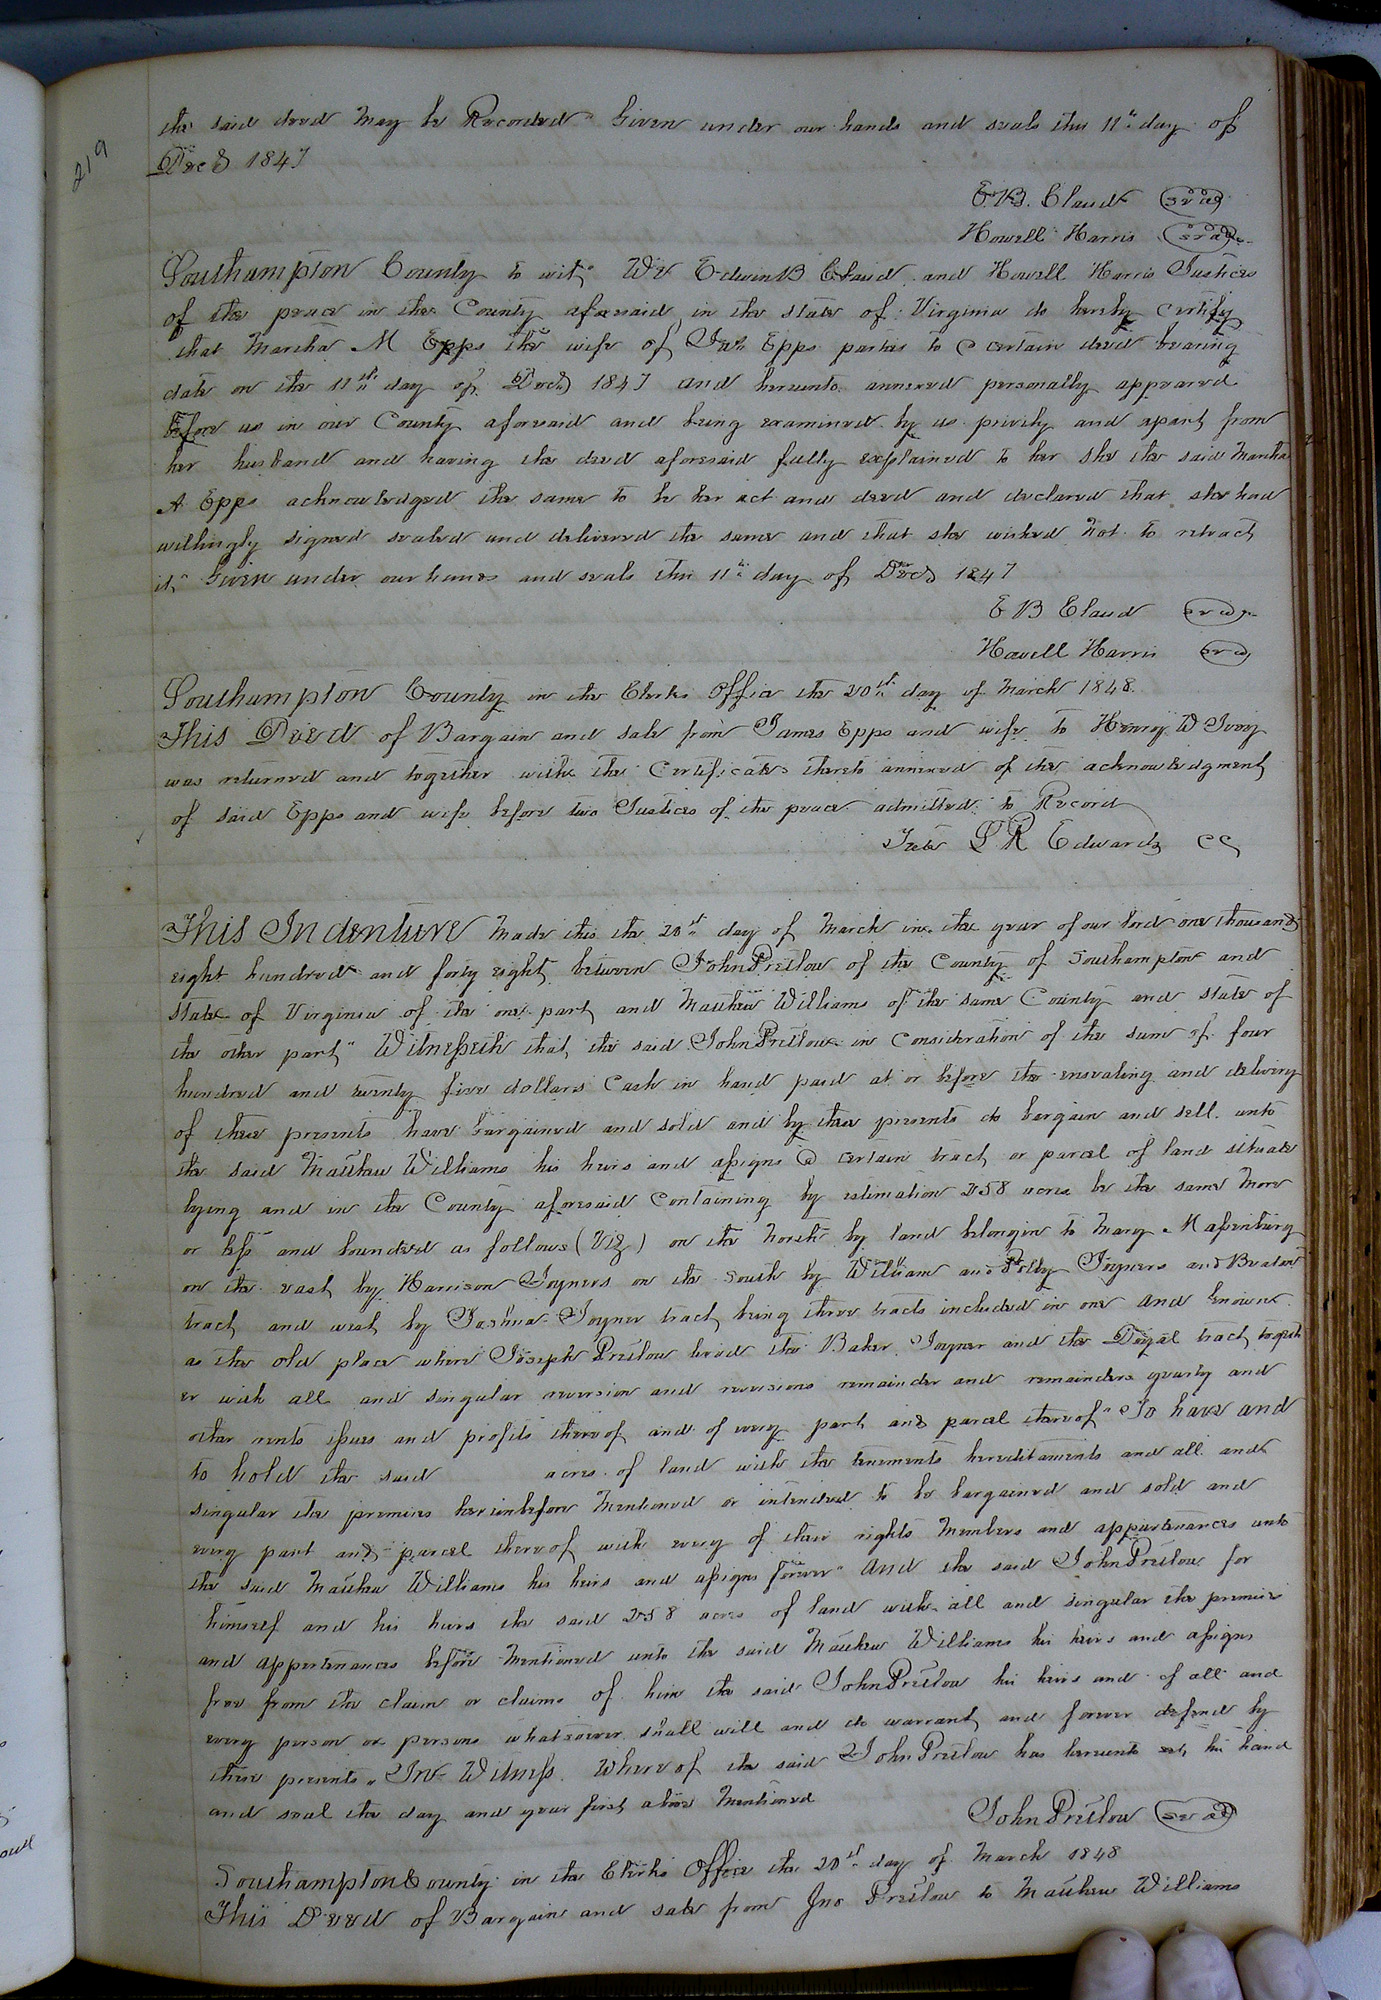 219
the said deed may be Recorded" Given under our hands and seals this 11th day of
Decr 1847
E.B. Claud seal
Howell Harris seal
Southampton County to wit," We Edwin B Claud and Howell Harris Justices
of the peace in the County aforesaid in the state of Virginia do hereby certify
that Martha M Epps the wife of Jas. Epps parties to a certain deed bearing
date on the 11th day of Decr 1847 and hereunto annexed personally appeared
before us in our County aforesaid and being examined by us privily and apart from
her husband and having the deed aforesaid fully explained to her she the said Martha
A Epps acknowledged the same to be her act and deed and declared that she had
willingly signed sealed and delivered the same and that she wished not to retract
it," Given under our hands and seals this 11th day of Decr 1847
E B Claud seal
Howell Harris seal
Southampton County in the Clerks Office the 20th day of March 1848.
This Deed of Bargain and sale from James Epps and wife to Henry W Ivey
was returned and together with the Certificates thereto annexed of the acknowledgment
of said Epps and wife before two Justices of the peace admitted to Record
Teste L R Edwards CC
This Indenture made this the 20th day of March in the year of our lord one thousand
eight hundred and forty eight, between John Pretlow of the County of Southampton and
state of Virginia of the one part and Matthew Williams of the same County and state of
the other part" Witnesseth that, the said John Pretlow in consideration of the sum of four
hundred and twenty five dollars Cash in hand paid at or before the ensealing and delivery
of these presents have bargained and sold and by these presents do bargain and sell unto
the said Matthew Williams his heirs and assigns a certain tract or parcel of land situate
lying and in the County aforesaid containing by estimation 258 acres be the same more
or less and bounded as follows (Viz) on the North by land belongin to Mary Massenburg
on the east by Harrison Joyners on the south by William and Polly Joyners and
tract and west by Joshua Joyner tract, being three tracts included in one and known
as the old place where Joseph Pretlow lived the Baker Joyner and the tract togeth
er with all and singular reversion and revisions remainder and remainders yearly and
other rents issues and profits thereof and of every part and parcel thereof" To have and
to hold the said acres of land with the tenements hereditaments and all and
singular the premises hereinbefore mentioned or intended to be bargained and sold and
every part and parcel thereof with every of their rights members and appurtenances unto
the said Matthew Williams his heirs and assigns forever" And the said John Pretlow for
himself and his heirs the said 258 acres of land with all and singular the premises
and appertenances before mentioned unto the said Matthew Williams his heirs and assigns
free from the claim or claims of him the said John Pretlow his heirs and of all and
every person or persons whatsoever shall will and do warrant and forever defend by
these presents" In Witness Whereof the said John Pretlow has hereunto set his hand
and seal the day and year first above mentioned
John Pretlow seal
Southampton County in the Clerks Office the 20th day of March 1848
This Deed of Bargain and sale from Jno Pretlow to Matthew Williams